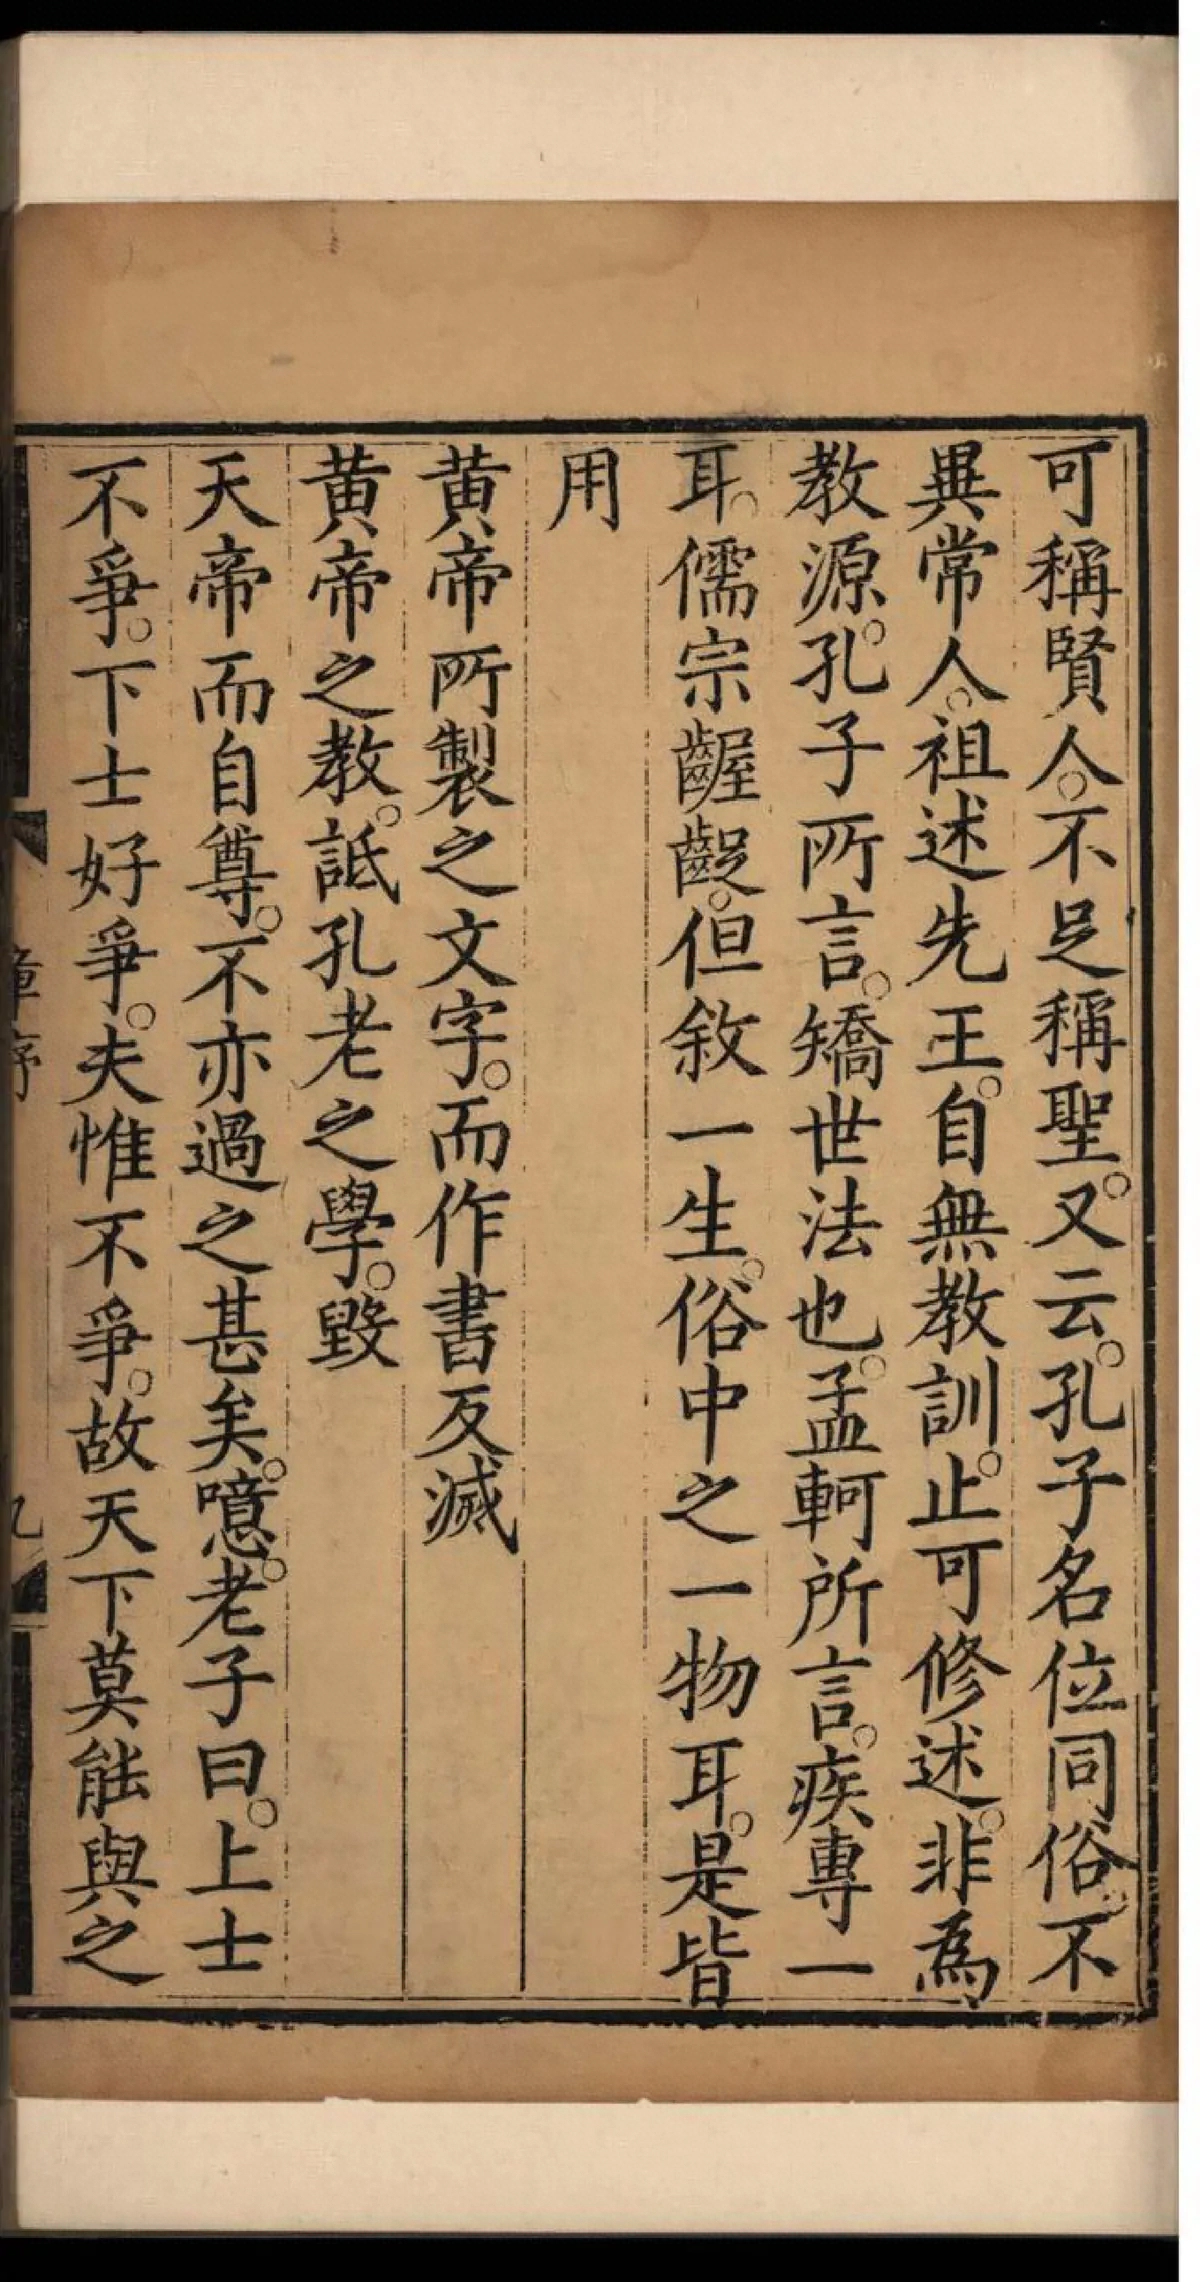 可稱賢人。不足稱聖。又云。孔子名位同俗。不
異常人。祖述先王。自無教訓。止可修述。非為
教源。孔子所言。矯世法也。孟軻所言。疾專一
耳。儒宗齷齪。但敘一生。俗中之一物耳。是皆
用
黃帝所製之文字。而作書反滅
黃帝之教。詆孔老之學。毀
天帝而自尊。不亦過之甚矣。噫。老子曰。上士
不爭。下士好爭。夫惟不爭。故天下莫能與之